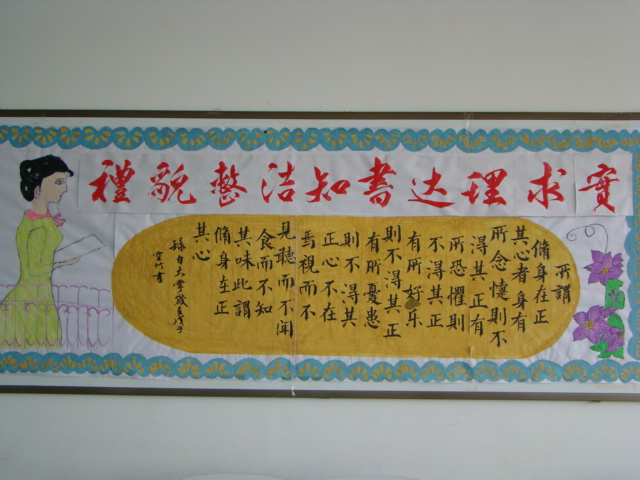 禮貌整洁知書达理求實
所謂
脩身在正
其心者身有
所忿懥則不
得其正有
所恐懼則
不得其正
有所好乐
則不得其正
有所憂患
則不得其
正心不在
焉視而不
見聽而不聞
食而不知
其味此謂
脩身在正
其心
錄自大學